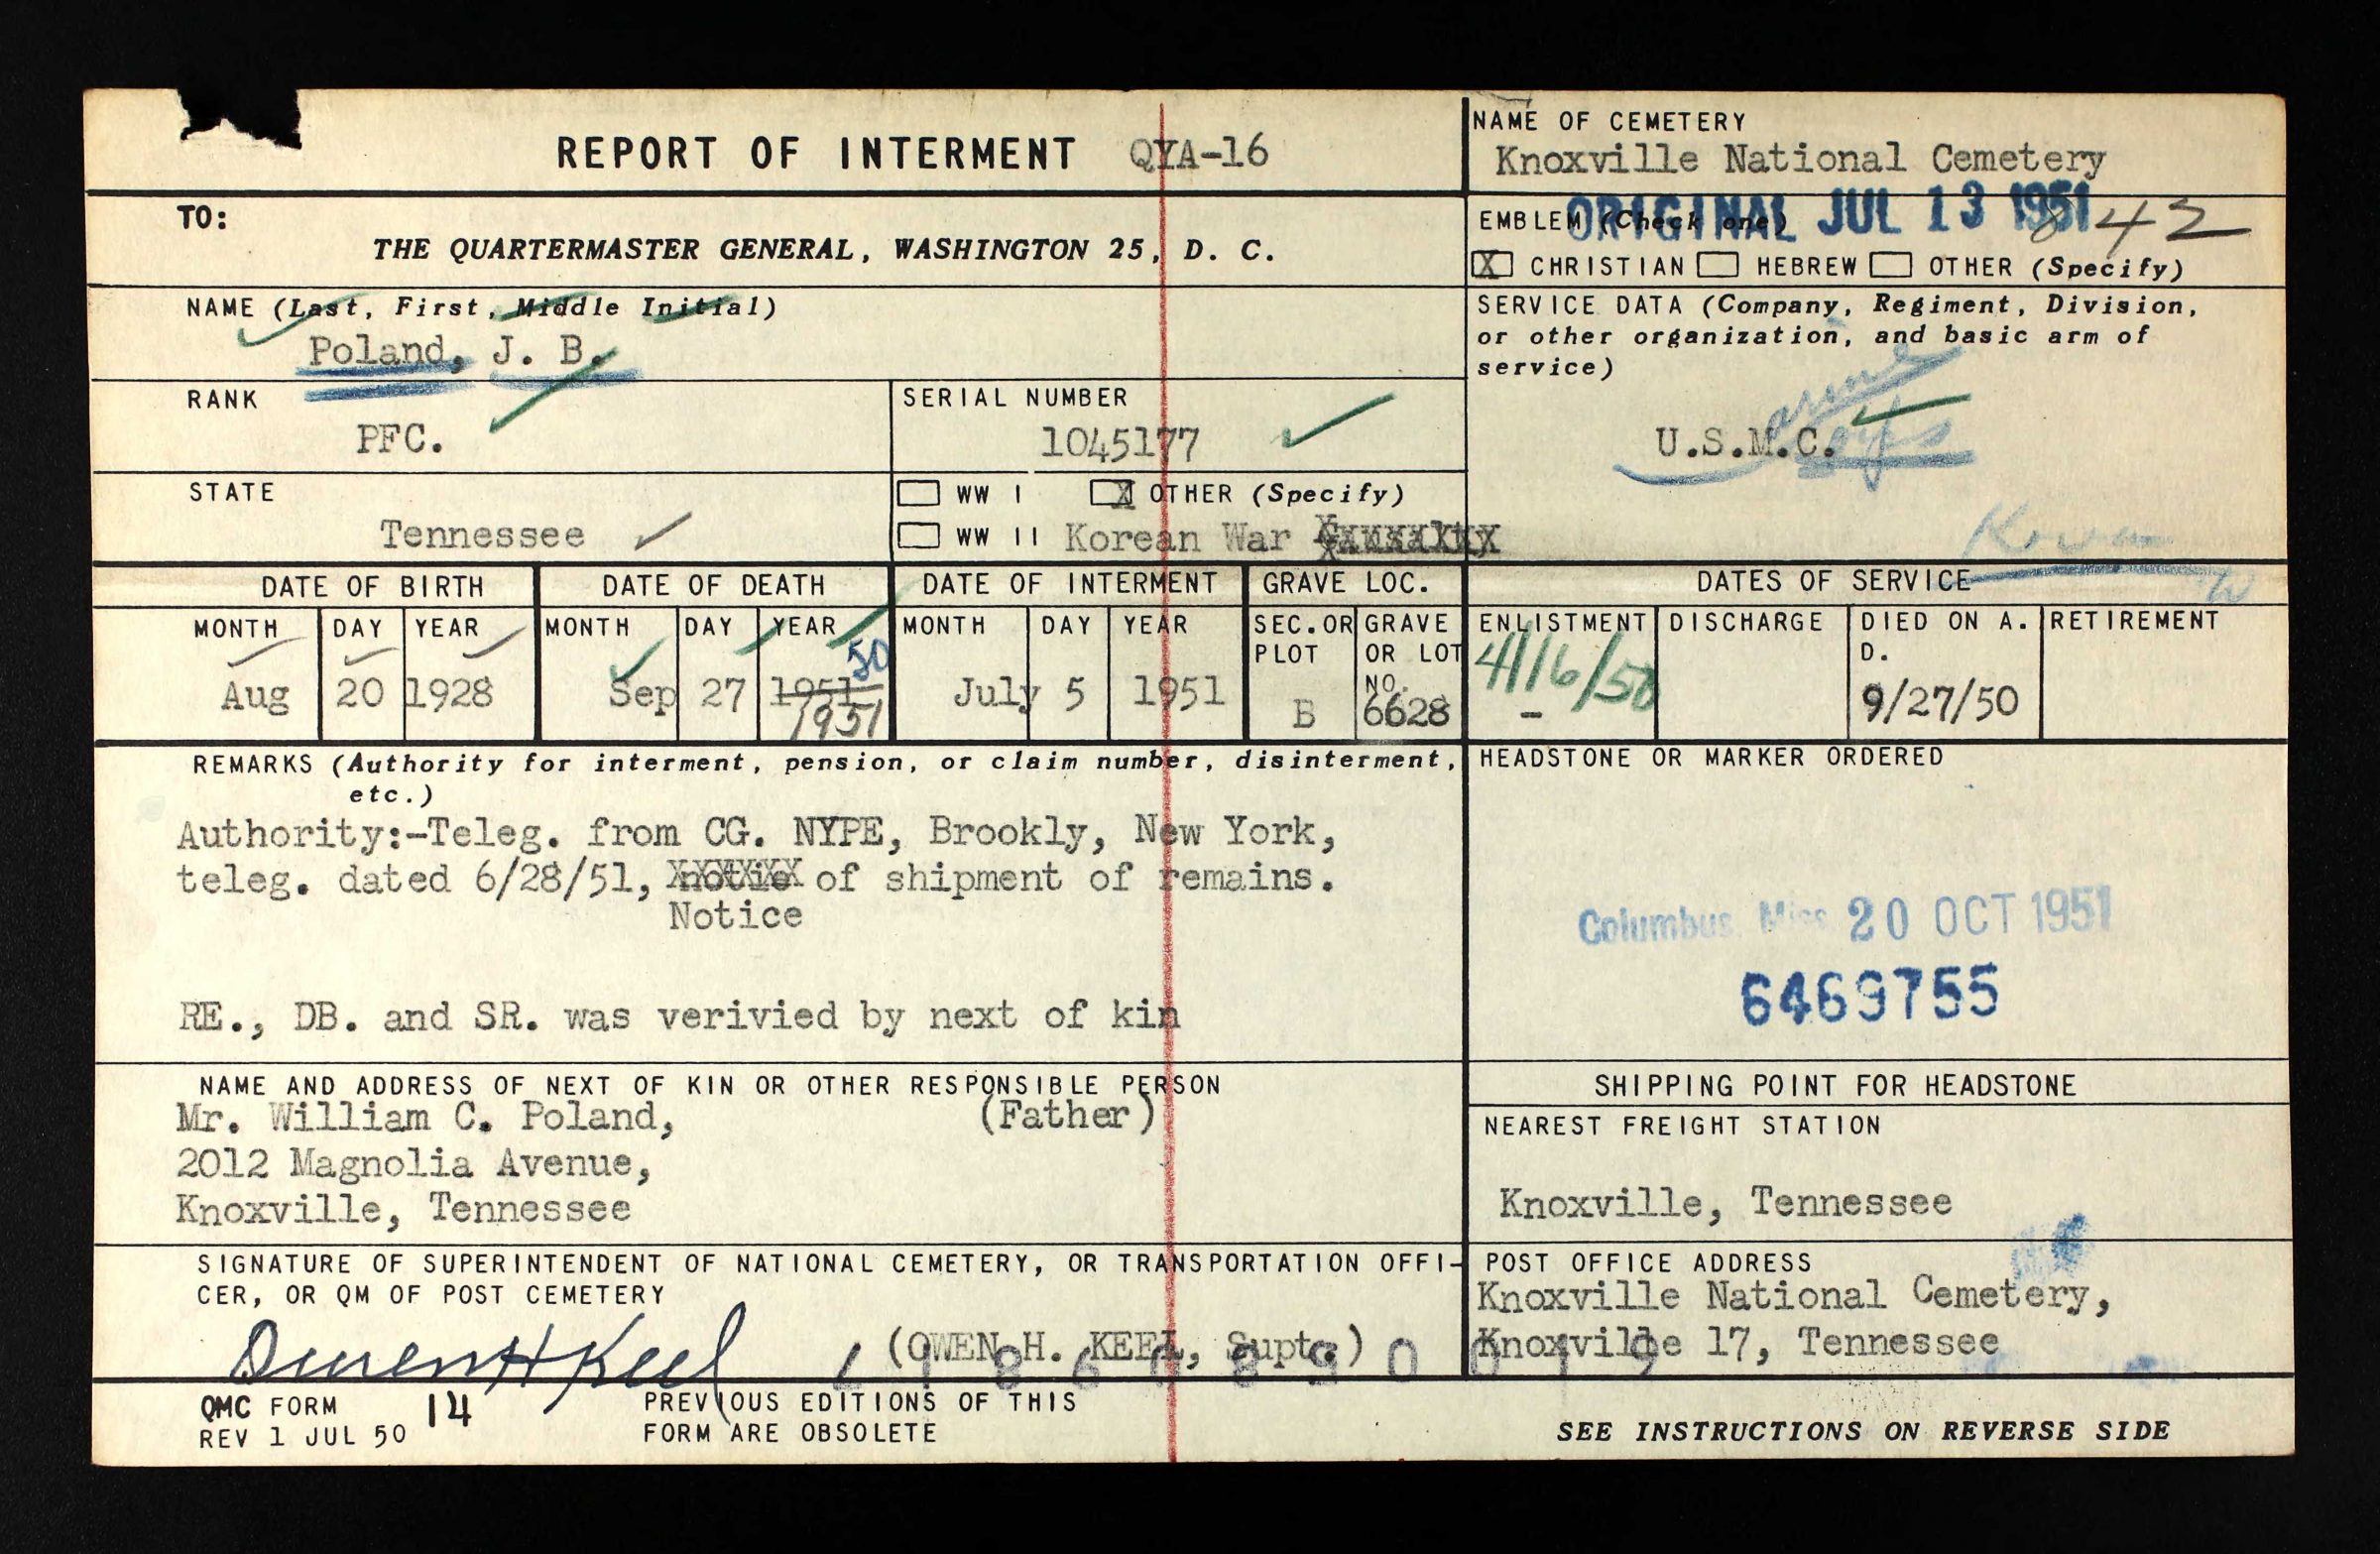 REPORT OF INTERMENT QYA-16
NAME OF CEMETERY
Knoxville National Cemetery
TO:
THE QUARTERMASTER GENERAL, WASHINGTON 25, D. C.
ORIGINAL JUL 13 1951
842
EMBLEM (Check one)
X CHRISTIAN HEBREW OTHER (Specify)
NAME (Last, First, Middle Initial)
Poland, J. B.
SERVICE DATA (Company, Regiment, Division,
or other organization, and basic arm of
service)
U.S.M.C.
RANK
PFC.
SERIAL NUMBER
1045177
STATE
Tennessee
WW I X OTHER (Specify)
WW II Korean War
Korea
DATE OF BIRTH
MONTH DAY YEAR
Aug 20 1928
DATE OF DEATH
MONTH DAY YEAR
50
Sep 27 1951
1951
DATE OF INTERMENT
MONTH DAY YEAR
July 5 1951
GRAVE LOC.
SEC. OR PLOT
B
GRAVE OR LOT NO.
6628
DATES OF SERVICE
ENLISTMENT DISCHARGE DIED ON A. D. RETIREMENT
4/16/50
-
9/27/50
REMARKS (Authority for interment, pension, or claim number, disinterment,
etc.)
Authority:-Teleg. from CG. NYPE, Brookly, New York,
teleg. dated 6/28/51, notie of shipment of remains.
Notice
RE., DB. and SR. was verivied by next of kin
HEADSTONE OR MARKER ORDERED
Columbus Miss 20 OCT 1951
6469755
NAME AND ADDRESS OF NEXT OF KIN OR OTHER RESPONSIBLE PERSON
Mr. William C. Poland, (Father)
2012 Magnolia Avenue,
Knoxville, Tennessee
SHIPPING POINT FOR HEADSTONE
NEAREST FREIGHT STATION
Knoxville, Tennessee
SIGNATURE OF SUPERINTENDENT OF NATIONAL CEMETERY, OR TRANSPORTATION OFFI-
CER, OR QM OF POST CEMETERY
Owen H Keel (OWEN H. KEEL, Supt.)
POST OFFICE ADDRESS
Knoxville National Cemetery,
Knoxville 17, Tennessee
QMC FORM 14
REV 1 JUL 50
PREVIOUS EDITIONS OF THIS
FORM ARE OBSOLETE
SEE INSTRUCTIONS ON REVERSE SIDE